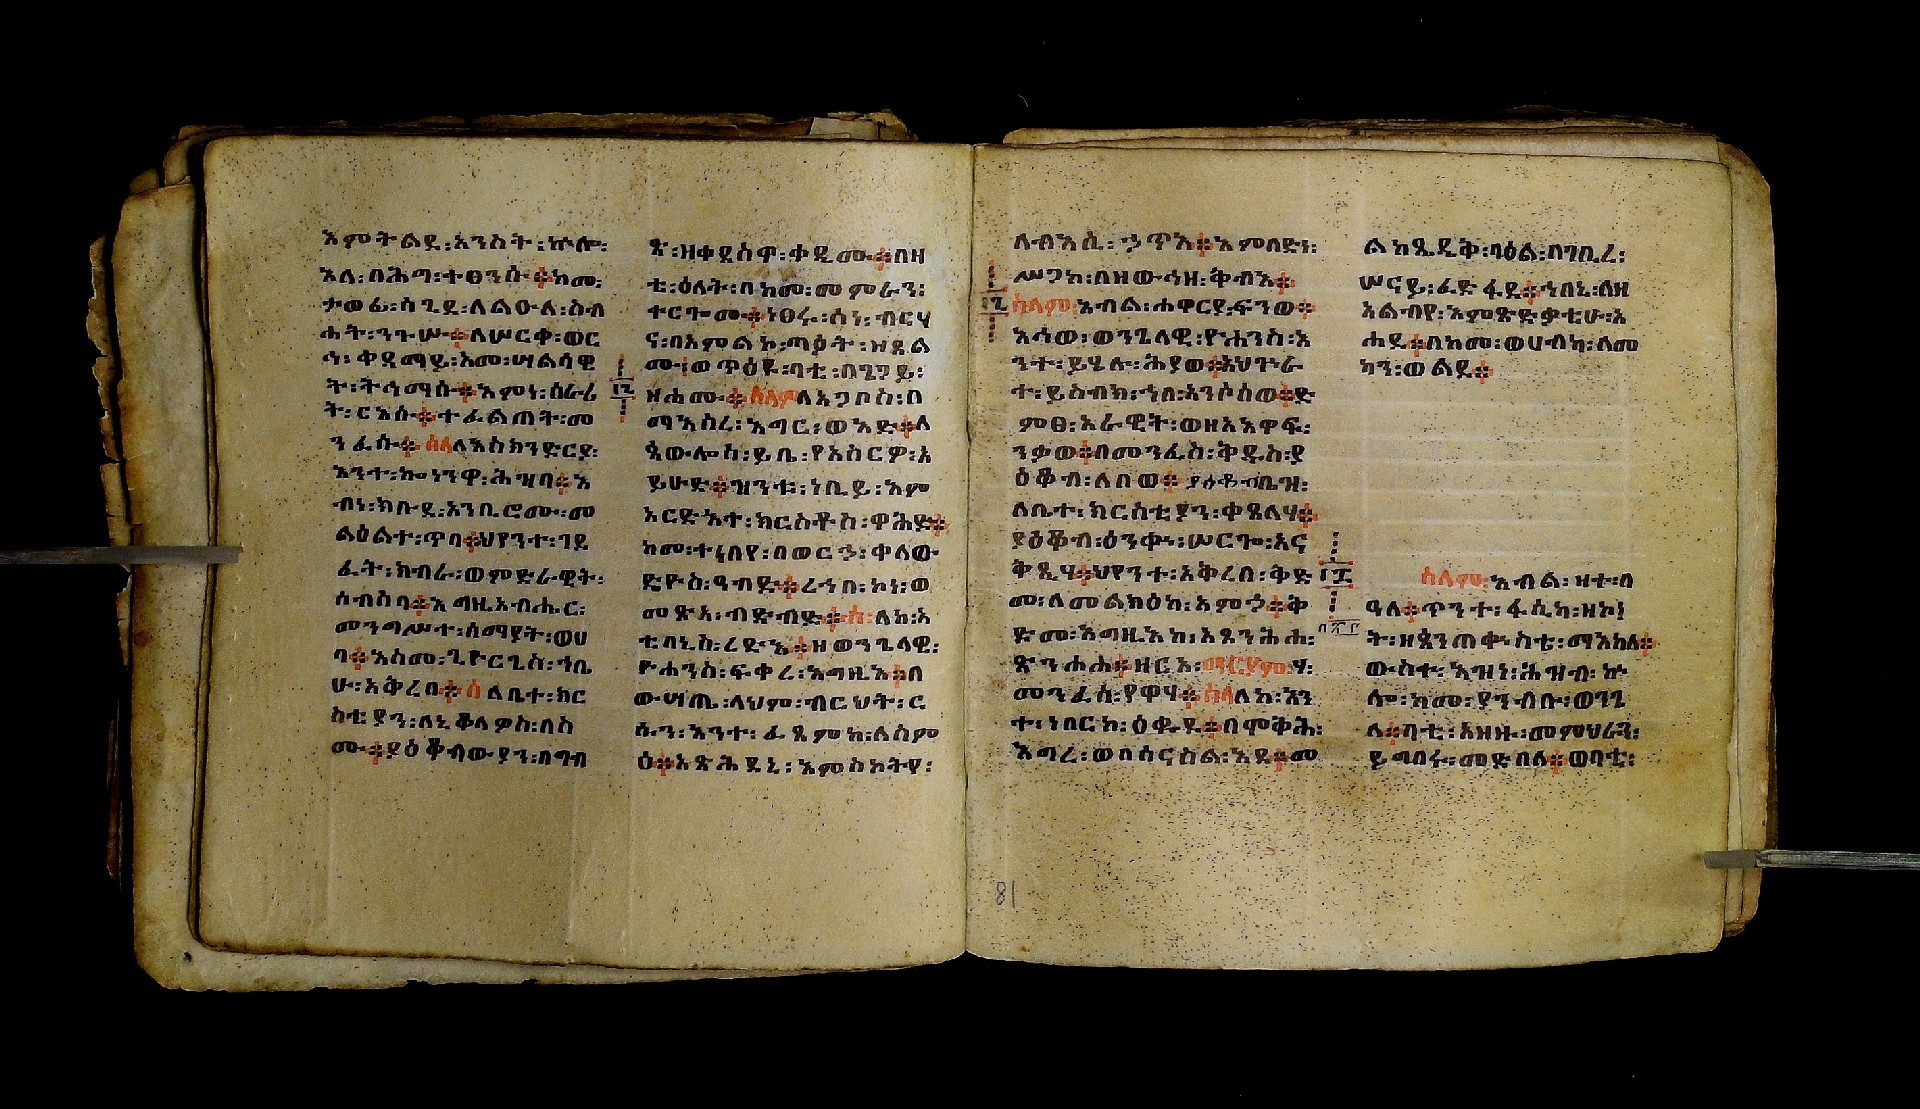 እምትልደ፡አንስት፡ኵሎ፡
እለ፡በሕግ፡ተፀንሱ፡፨ከመ፡
ታወፊ፡ስጊደ፡ለልዑለ፡ስብ
ሐት፡ንጉሥ፡፨ለሠርቀ፡ወር
ኅ፡ቀዳማይ፡አመ፡ሣልሳዊ
ት፡ትኅማሱ፡፨እምነ፡ሰራሪ
ት፡ርእሱ፡፨ተፈልጠት፡መ
ንፈሱ፡፨ሰላለእስክንድርያ፡
እንተ፡ኰነንዋ፡ሕዝባ፨እ
ብነ፡ክቡደ፡አንቢሮሙ፡መ
ልዕልተ፡ጥባ፨ህየንተ፡ገደ
ፈት፡ክብራ፡ወምድራዊት፡
ሰብስባ፨እግዚአብሔር፡
መንግሥተ፡ሰማያት፡ወሀ
ባ፨እስመ፡ጊዮርጊስ፡ኀቤ
ሁ፡አቅረበ፨ሰለቤተ፡ክር
ስቲያን፡ለኒቆላዎስ፡በስ
ሙ፡፨ያዕቆብውያን፡በግብ
ጽ፡ዘቀደስዋ፡ቀዲሙ፡፨በዘ
ቲ፡ዕለት፡በከመ፡መምራን፡
ተርጐሙ፨ነፀሩ፡ሰነ፡ብርሃ
ና፡በአምልኮ፡ጣዕት፡ዝጺል
ሙ፡፨ወጥዕዩ፡ባቲ፡በጊዜይ፡
ዘሐሙ፡፨ሰላምለአጋቦስ፡በ
ማእሰረ፡እግር፡ወእድ፨ለ
ጳውሎስ፡ይቤ፡የአስርዎ፡አ
ይሁድ፨ዝንቱ፡ነቢይ፡እም
አርድእተ፡ክርስቶስ፡ዋሕድ፨
ከመ፡ተነበየ፡በወርኃ፡ቀላው
ዴዮስ፡ዓብድ፨ረኀበ፡ኮነ፡ወ
መጽአ፡ብድብድ፡፨ሰ፡ለከ፡አ
ቲባኒስ፡ረድኤ፨ዘወንጌላዊ፡
ዮሐንስ፡ፍቀረ፡እግዚእ፨በ
ውሣጤ፡ላህም፡ብርህት፡ር
ሱን፡እንተ፡ፈጸምከ፡ለስም
ዕ፨አጽሕደኒ፡እምስከትየ፡
ለብእሲ፡ኃጥእ፨እምበድነ፡
ሥጋከ፡በዘውኅዘ፡ቅብእ፨
ሰላም፡እብል፡ሐዋርያ፡ፍንወ፨
እኅወ፡ወንጌላዊ፡ዮሐንስ፡እ
ንተ፡ይሄሉ፡ሕያወ፨አህጉራ
ተ፡ይስብክ፡ኀበ፡አንሶሰወ፨ድ
ምፀ፡አራዊት፡ወዘአእዋፍ፡
ንቃወ፨በመንፈስ፡ቅዱስ፡ያ
ዕቆብ፡ለበወ፨ያዕቆብቤዝ፡
ለቤተ፡ክርስቲያን፡ቀጸላሃ፨
ያዕቆብ፡ዕንቍ፡ሠርጐ፡አና
ቅጺሃ፨ህየንተ፡አቅረበ፡ቅድ
መ፡ለመልክዕከ፡አምኃ፡፨ቅ
ድመ፡እግዚእከ፡አጸንሕሐ፡
ጽንሐሐ፨ዘርእ፡ወፍርሃምሃ፡
መንፈሰ፡የዋሃ፨ሰላለከ፡እን
ተ፡ነበርከ፡ዕቁደ፨በሞቅሕ፡
እግረ፡ወበሰናስል፡እደ፨መ
ልከጼዴቅ፡ባዕል፡በገቢረ፡
ሠናይ፡ፈድፋደ፨ኀበኒ፡ለዘ
እልብየ፡እምጽድቃቲሁ፡አ
ሐደ፨በከመ፡ወሀብካ፡ለመ
ካን፡ወልደ፨
ሰላም፡እብል፡ዘተ፡በ
ዓለ፨ጥንተ፡ፋሲካ፡ዘኮነ
ት፡ዘጸንጠቀ፡ስቴ፡ማእከለ፨
ውስተ፡እዝነ፡ሕዝብ፡ኵ
ሎ፡ከመ፡ያንብቡ፡ወንጌ
ለ፨ባቲ፡አዘዙ፡መምህራን፡
ይግበሩ፡መድበለ፨ወባቲ፡
81